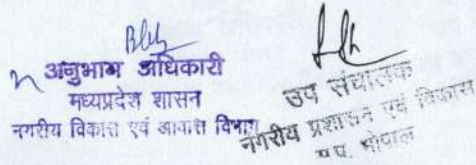 अनुभाग अधिकारी
मध्यप्रदेश शासन
नगरीय विकास एवं आवास विभाग
उप संचालक
नगरीय प्रशासन एवं विकास
म.प्र. भोपाल